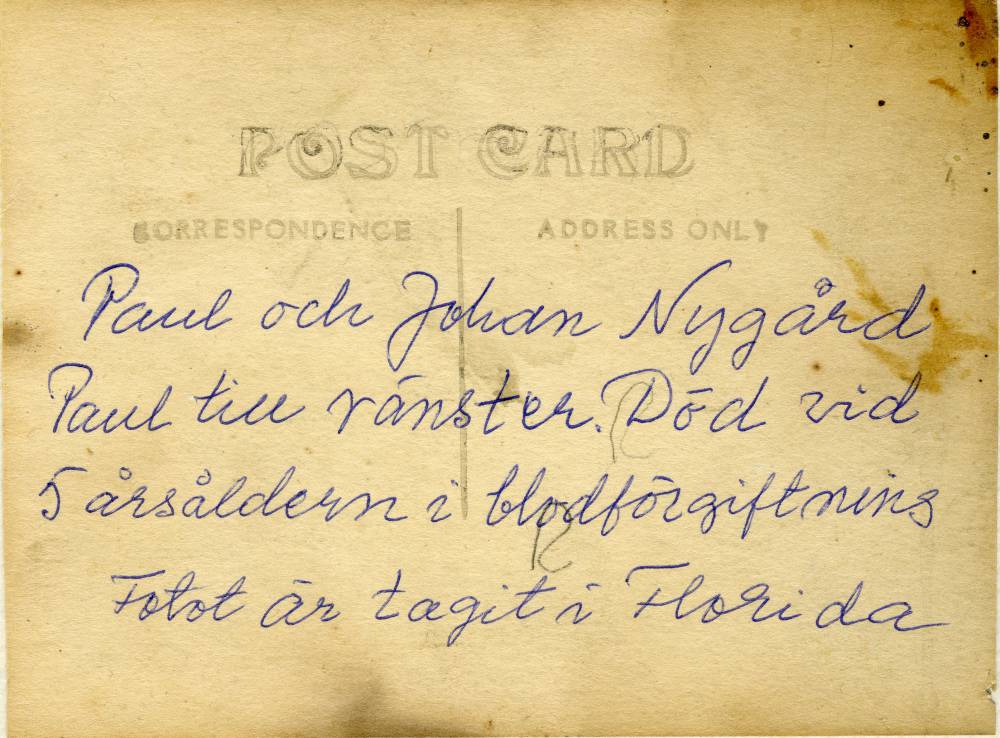 POST CARD
CORRESPONDENCE ADDRESS ONLY
Paul och Johan Nygård
Paul till vänster. Död vid
5 årsåldern i blodförgiftning
Fotot är tagit i Florida